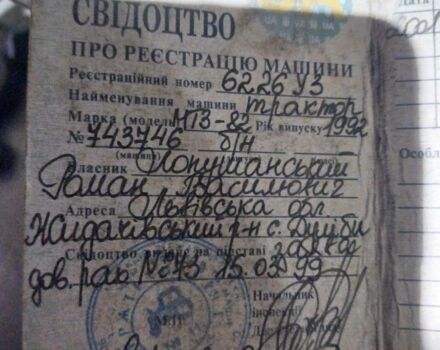 СВІДОЦТВО
ПРО РЕЄСТРАЦІЮ МАШИНИ
Реєстраційний номер 62.26 УЗ
Найменування машини трактор
Марка (модель) МТЗ-82 Рік випуску 1992
№ 743746 б/н
(машини)
Власник
Роман Васильович
Адреса Львівська обл.
Жидачівський р-н с.
Свідоцтво видане на підставі
дов. №73 15.03.99
Начальник
інспекції
М.П.
Дата
Особл